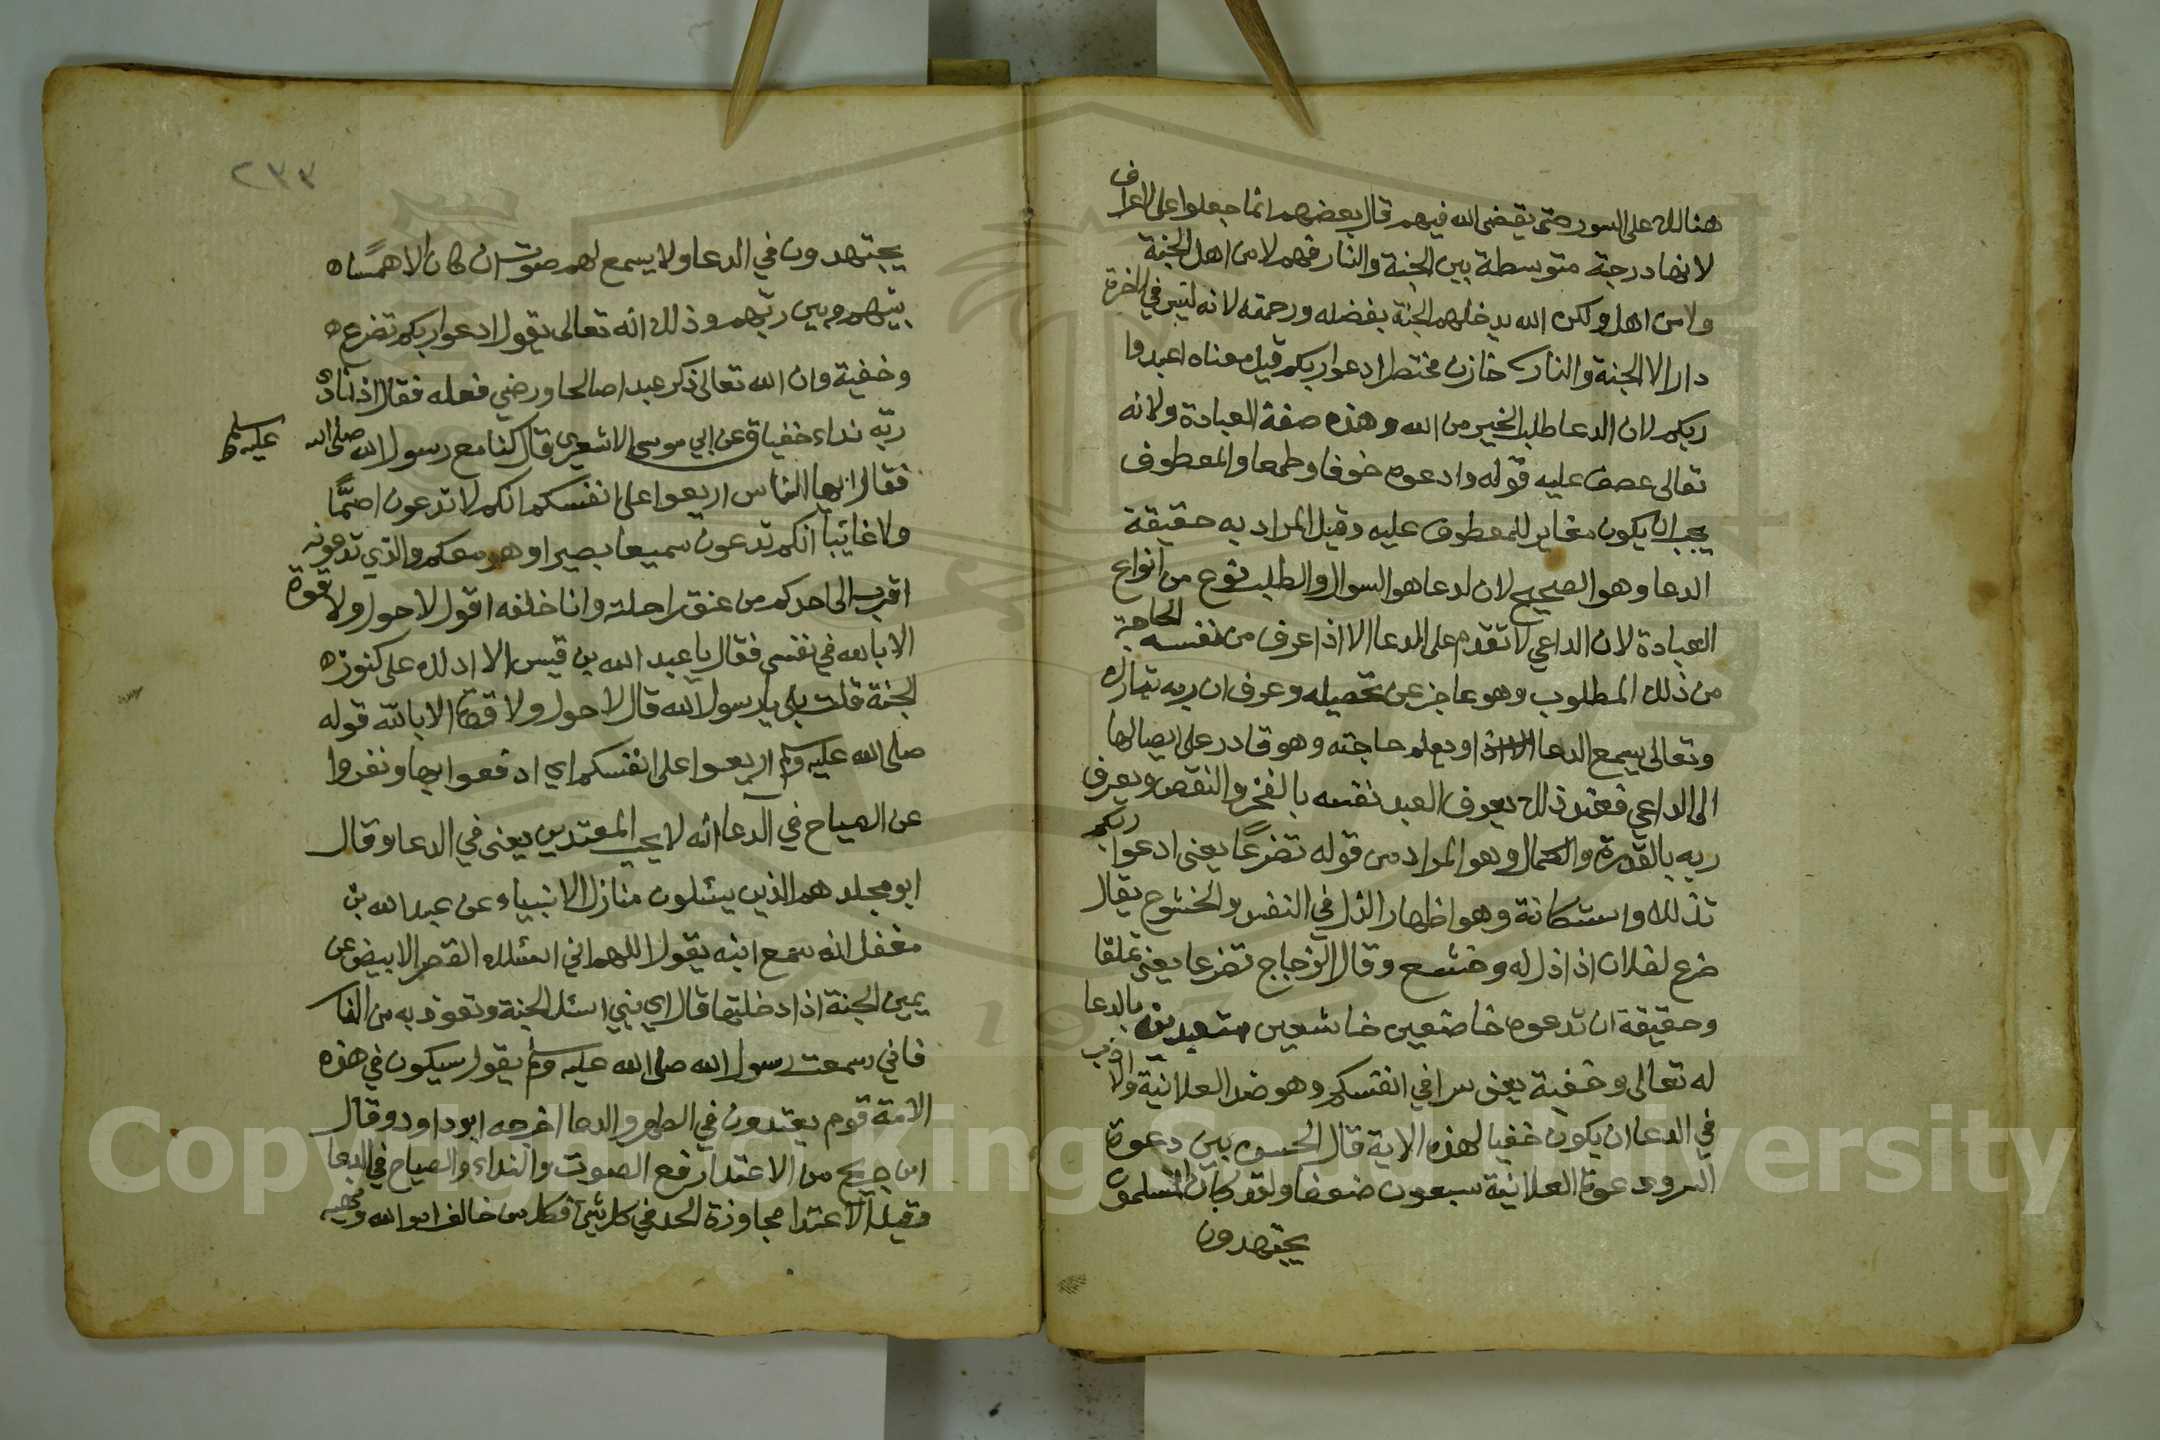 هنالك على السور حتى يقضى الله فيهم قال بعضهم انما جعلوا على الاعراف
لانها درجة متوسطة بين الجنة والنار فهم لا من اهل الجنة
ولا من اهل ولكن الله يدخلهم الجنة بفضله ورحمته لانه ليس في الاخرة
دار الا الجنة والنار خازن مختصر ادعوا ربكم قيل معناه اعبدوا
ربكم لان الدعا طلب الخير من الله وهذه صفة العبادة ولانه
تعالى عصف عليه قوله وادعوه خوفا وطمعا والمعطوف
يجب ان يكون مغاير للمعطوف عليه وقيل المراد به حقيقة
الدعا وهو الصحيح لان لدعا هو السوال والطلب نوع من انواع
العبادة لان الداعي لا تقدم على الدعا الا اذا عرف من نفسه الحاجة
من ذلك المطلوب وهو عاجز عن تحصيله وعرف ان ربه تبارك
وتعالى يسمع الدعا ويعلم حاجته وهو قادر على ايصالها
الى الداعي فعند ذلك يعرف العبد نفسه بالفخر والنقص ويعرف
ربه بالقدرة والكمال وهو المراد من قوله تضرعا يعنى ادعوا ربكم
تذللا واستكانة وهو اظهار الذل في النفس والخشوع يقال
ضرع لفلان اذا ذل له وخشع وقال الزجاج تضرعا يعنى تملقا
وحقيقة ان تدعوه خاضعين خاشعين متعبدين بالدعا
له تعالى وخفية يعنى سرا في انفسكم وهو ضد العلانية والادب
في الدعا ان يكون خفيا لهذه الاية قال الحسن بين دعوة
السر ودعوة العلانية سبعون ضعفا ولقد كان المسلمون
يجتهدون
٢٣٣
يجتهدون في الدعا ولا يسمع لهم صوت ان كان الا همسا
بينهم وبين ربهم وذلك انه تعالى يقول ادعوا ربكم تضرع
وخفية وان الله تعالى ذكر عبدا صالحا ورضي فعله فقال اذ نادى
ربه نداء خفيا ق عن ابي موسى الاشعرى قال كنا مع رسول الله صلى الله عليه وسلم
فقال ايها الناس اربعوا على انفسكم انكم لا تدعون اصما
ولا غايبا انكم تدعون سميعا بصيرا وهو معكم والذي تدعونه
اقرب الى احدكم من عنق راحلته وانا خلفه اقول لا حول ولا قوة
الا بالله في نفسى فقال يا عبد الله بن قيس الا ادلك على كنوز
الجنة قلت بلى يا رسول الله قال لا حول ولا قوة الا بالله قوله
صلى الله عليه وسلم اربعوا على انفسكم اي ادفعوا بها ونفروا
عن الصياح في الدعا انه لا يحب المعتدين يعنى في الدعا وقال
ابو مجلد هم الذين يسئلون منازل الانبياء عن عبد الله بن
مغفل انه سمع ابنه يقول اللهم اني اسئلك القصر الابيض عن
يمين الجنة اذا دخلتها قال اي بني اسئل الجنة وتعوذ به من النار
فاني سمعت رسول الله صلى الله عليه وسلم يقول سيكون في هذه
الامة قوم يعتدون في الطهر والدعا اخرجه ابو داود وقال
ابن جريح من الاعتدا رفع الصوت والنداء والصياح في الدعا
وقيل الاعتدا مجاوزة الحد في كل شئ فكل من خالف امر الله ونهيه
Copyright © King Saud University